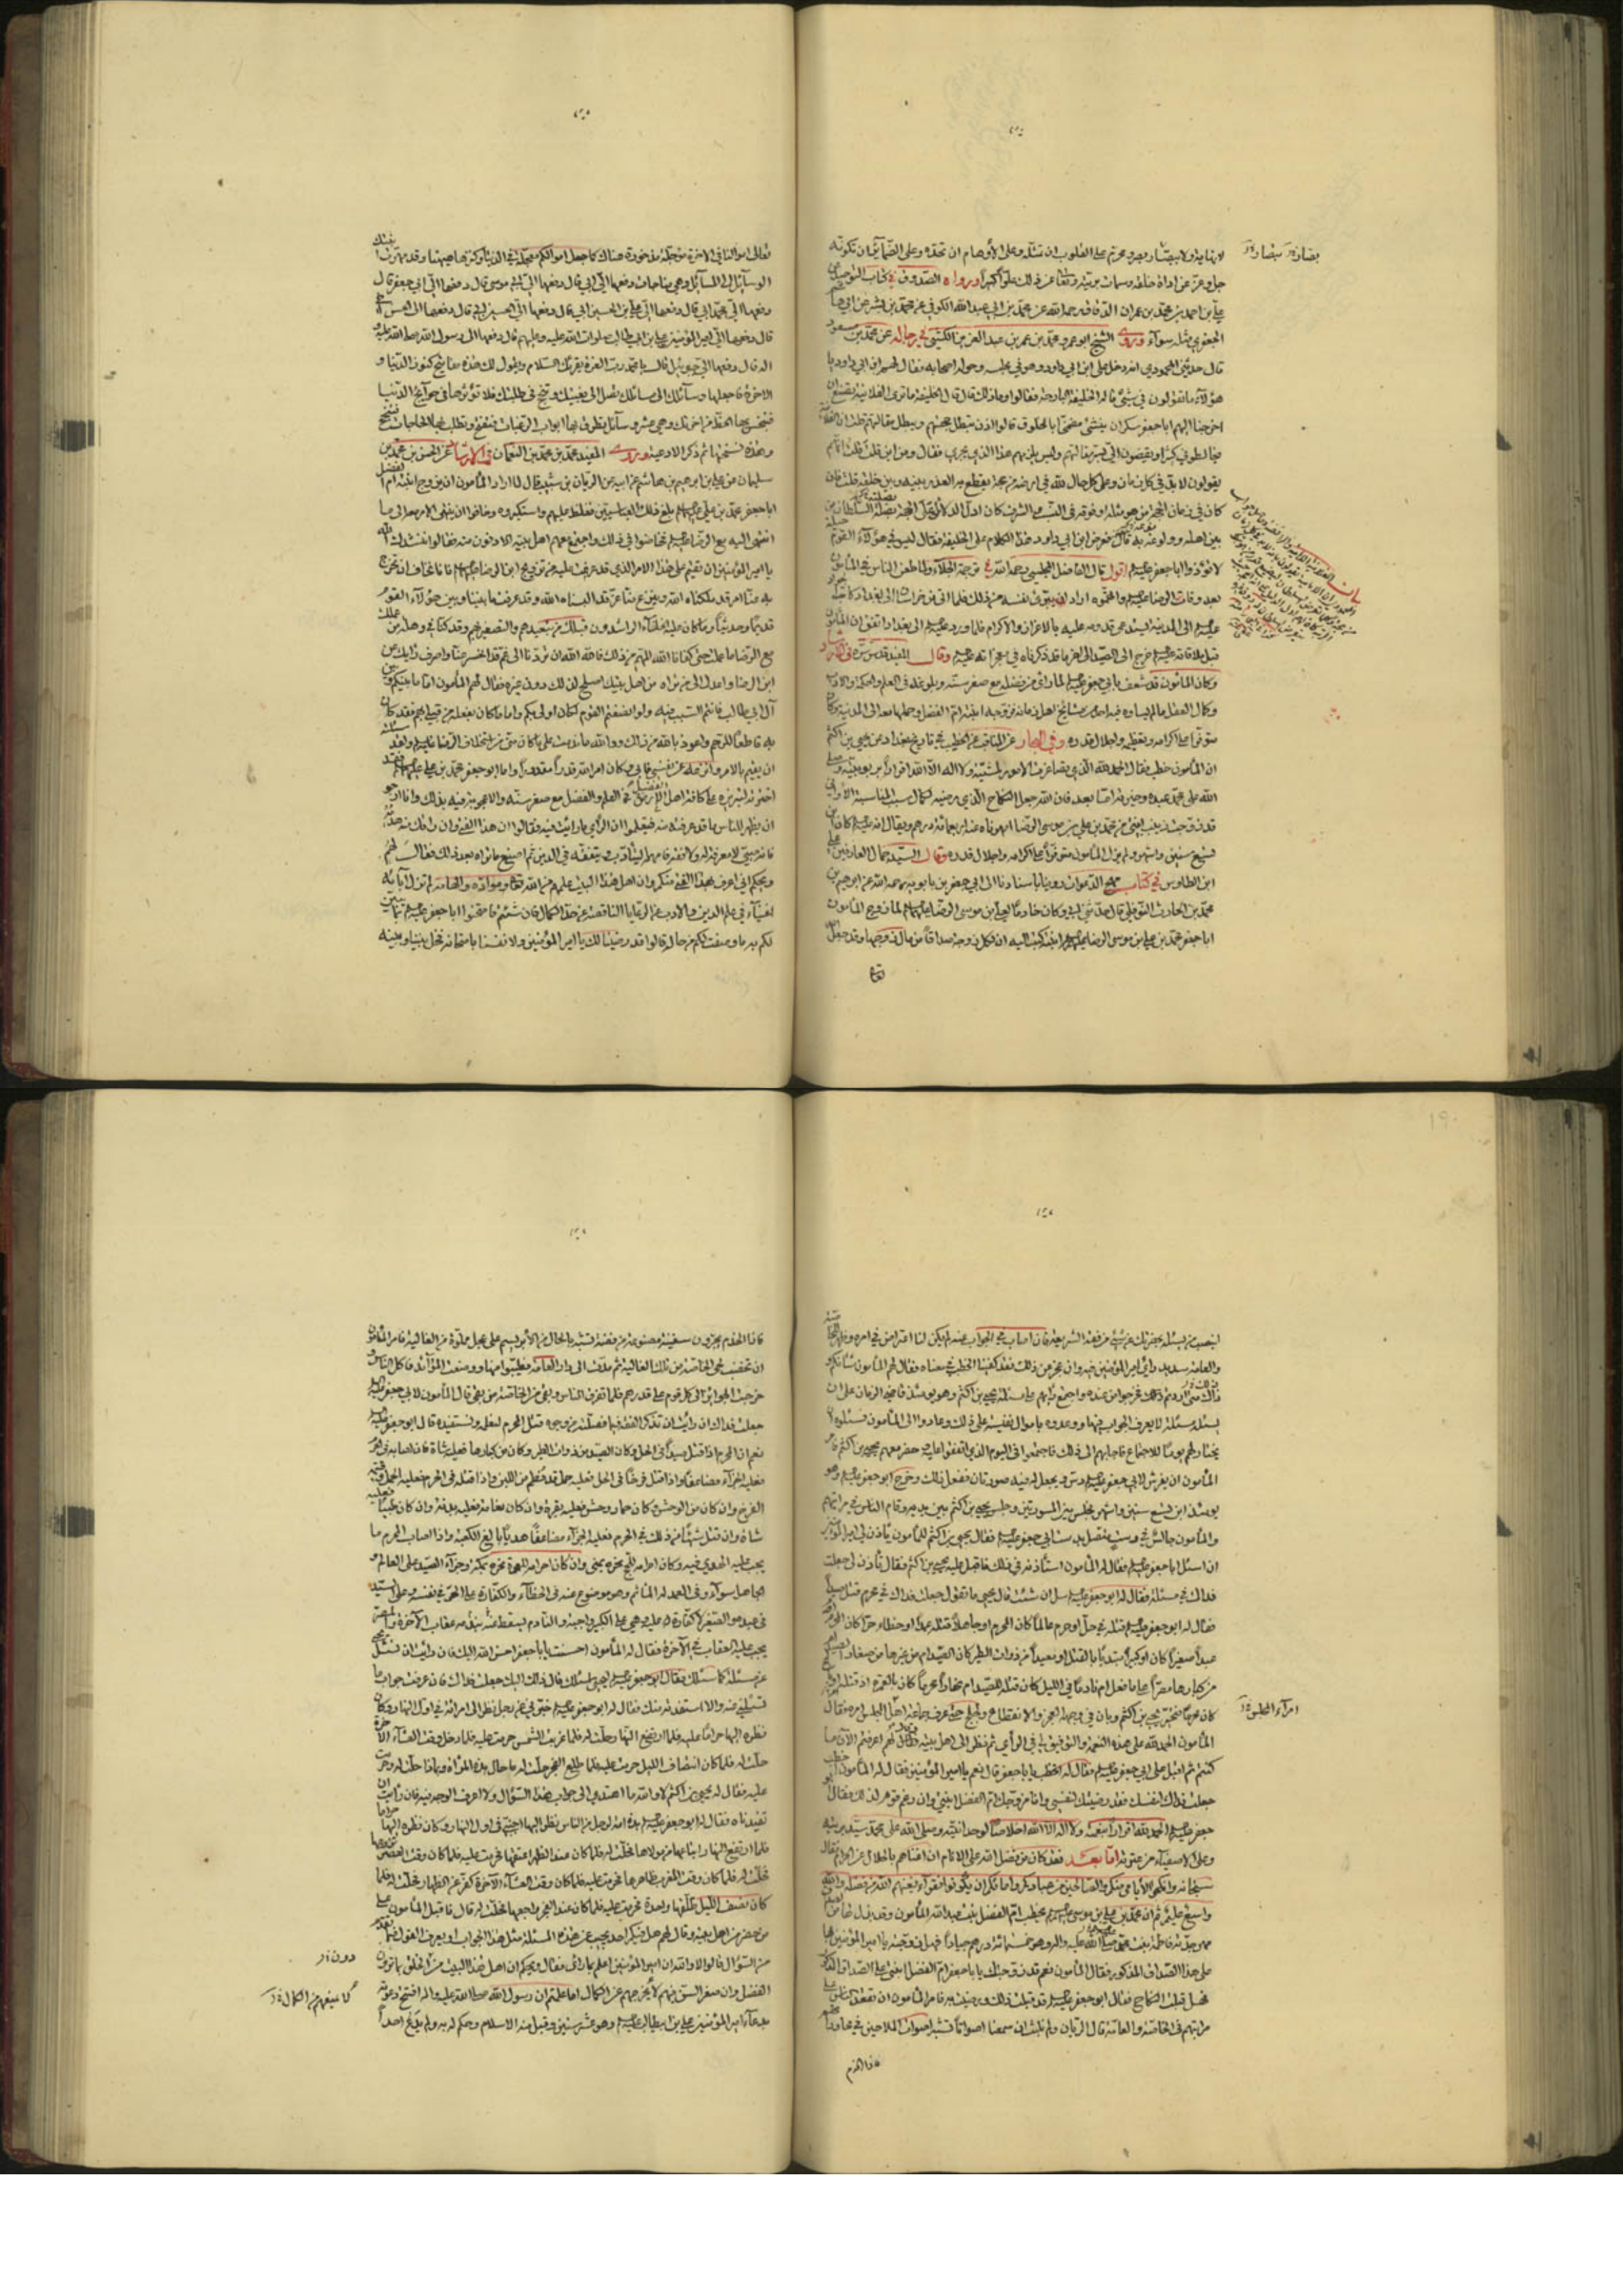 جل وعز عن اداة خلقه وسمات بريته وتعالى عن ذلك علوا كبيرا ورواه الصدوق في كتاب التوحيد عن
علي بن احمد بن محمد بن عمران الدقاق رحمه الله عن محمد بن ابي عبد الله الكوفي عن محمد بن بشر عن ابي هاشم
الجعفري مثله سوآء وروى الشيخ ابو عمرو محمد بن عمر بن عبد العزيز الكشي في رجاله عن محمد بن مسعود
قال حدثني المحمودي انه دخل على ابن ابي داود وهو في مجلسه وحوله اصحابه فقال لهم ابن ابي داود يا
هؤلآء ما تقولون في شيء قاله الخليفة البارحة فقالوا وما ذلك قال قال الخليفة ما ترى الفلانية تصنع ان
اخرجنا اليهم ابا جعفر سكران ينشي مضمخا بالخلوق قالوا اذن تبطل حجتهم ويبطل مقالهم قلت ان الفلانية
يقولون لا بد في كل زمان وعلى كل حال لله في ارضه من حجة يقطع به العذر بينه وبين خلقه قلت فان
كان في زمان الحجة من هو مثله او فوقه في النسب والشرف كان ادل الدلائل على الحجة
بين اهله وولوعه به قال فعرض ابن ابي داود هذا الكلام على الخليفة فقال ليس في هؤلآء القوم
لا تؤذوا ابا جعفر عليه السلام اقول قال الفاضل المجلسي رحمه الله في ترجمة الجلاء ولما طعن الناس في المأمون
بعد وفات الرضا عليه السلام واتهموه اراد ان يبرئ نفسه من ذلك فلما اتى من خراسان الى بغداد كاتب
عليه السلام الى المدينة يستدعي قدومه عليه بالاعزاز والاكرام فلما ورد عليه السلام الى بغداد اتفق ان المأمون
قبل ملاقاته عليه السلام خرج الى الصيد الى اخر ما قد ذكرناه في معجزاته عليه السلام وقال المفيد قدس سره في الارشاد
وكان المأمون قد شعف بابي جعفر عليه السلام لما راى من فضله مع صغر سنه وبلوغه في العلم والحكمة والادب
وكمال العقل ما لم يساوه فيه احد من مشايخ اهل زمانه فزوجه ابنته ام الفضل وحملها معه الى المدينة وكان
متوفرا على اكرامه وتعظيمه واجلال قدره وفي البحار عن المناقب عن الخطيب في تاريخ بغداد عن يحيى بن اكثم
ان المأمون خطب فقال الحمد لله الذي تصاغرت الامور لمشيته ولا اله الا الله اقرارا بربوبيته وصلى
الله على محمد عبده وخيرته اما بعد فان الله جعل النكاح الذي رضيه لكمال سبب المناسبة الا واني
قد زوجت زينب ابنتي من محمد بن علي بن موسى الرضا امهرناها عنه اربعمائة درهم ويقال انه عليه السلام كان ابن
تسع سنين واشهر ولم يزل المأمون متوفرا على اكرامه واجلال قدره وقال السيد جمال العارفين علي
ابن الطاوس في كتاب مهج الدعوات روينا باسنادنا الى ابي جعفر بن بابويه رحمه الله عن ابرهيم بن
محمد بن الحارث النوفلي قال حدثني ابي وكان خادما لعلي بن موسى الرضا عليهما السلام لما زوج المأمون
ابا جعفر محمد بن علي بن موسى الرضا عليهم السلام ابنته كتب اليه ان لكل زوجة صداقا من مال زوجها وقد جعل
تعالى اموالنا في الاخرة مؤجلة مذخورة هناك كما جعل اموالكم معجلة في الدنيا وكنزها ههنا وقد امهرت ابنتك
الوسآئل الى المسآئل وهي مناجات دفعها الي ابي قال دفعها الي ابي موسى قال دفعها الي ابي جعفر قال
دفعها الي محمد ابي قال دفعها الي علي بن الحسين ابي قال دفعها الي الحسين ابي قال دفعها الي الحسن اخي
قال دفعها الي امير المؤمنين علي بن ابي طالب صلوات الله عليه وعليهم قال دفعها الي رسول الله صلى الله عليه
واله قال دفعها الي جبرئيل قال يا محمد رب العزة يقرئك السلام ويقول لك هذه مفاتيح كنوز الدنيا و
الاخرة فاجعلها وسآئلك الى مسائلك تصل الى بغيتك وتنجح في طلبتك فلا تؤثرها في حوآئج الدنيا
فتبخس بها الحظ من اخرتك وهي عشر وسآئل تطرق بها ابواب الرغبات فتفتح وتطلب بها الحاجات فتنجح
وهذه نسختها ثم ذكر الادعية وروى المفيد محمد بن محمد بن النعمان في الارشاد عن الحسن بن محمد بن
سليمان عن علي بن ابرهيم بن هاشم عن ابيه عن الريان بن شبيب قال لما اراد المأمون ان يزوج ابنته ام الفضل
ابا جعفر محمد بن علي عليهما السلام بلغ ذلك العباسيين فغلظ عليهم واستكبروه وخافوا ان ينتهي الامر معه الى ما
انتهى اليه مع الرضا عليه السلام فخاضوا في ذلك واجتمع منهم اهل بيته الادنون منه فقالوا ننشدك الله
يا امير المؤمنين ان تقيم على هذا الامر الذي قد عزمت عليه من تزويج ابن الرضا عليه السلام فانا نخاف ان تخرج
به عنا امرا قد ملكناه الله وتنزع منا عزا قد البسناه الله وقد عرفت ما بيننا وبين هؤلآء القوم
قديما وحديثا وما كان عليه الخلفآء الراشدون قبلك من تبعيدهم والتصغير بهم وقد كنا في وهلة من عملك
مع الرضا ما عملت حتى كفانا الله المهم من ذلك فالله الله ان تردنا الى غم قد انحسر عنا واصرف رأيك عن
ابن الرضا واعدل الى من تراه من اهل بيتك يصلح لذلك دون غيره فقال لهم المأمون اما ما بينكم وبين
آل ابي طالب فانتم السبب فيه ولو انصفتم القوم لكان اولى بكم واما ما كان يفعله من قبلي بهم فقد كان
به قاطعا للرحم واعوذ بالله من ذلك ووالله ما ندمت على ما كان مني من استخلاف الرضا عليه السلام ولقد سئلته
ان يقوم بالامر وانزعه عن نفسي فابى وكان امر الله قدرا مقدورا واما ابو جعفر محمد بن علي عليهما السلام فقد
اخترته لتبريزه على كافة اهل الفضل في العلم والفضل مع صغر سنه والاعجوبة فيه بذلك وانا ارجو
ان يظهر للناس ما قد عرفته منه فيعلموا ان الرأي ما رأيت فيه فقالوا ان هذا الفتى وان راقك منه هديه
فانه صبي لا معرفة له ولا فقه فامهله ليتأدب ويتفقه في الدين ثم اصنع ما تراه بعد ذلك فقال لهم
ويحكم اني اعرف بهذا الفتى منكم وان اهل هذا البيت علمهم من الله تعالى ومواده والهامه لم تزل آباؤه
اغنيآء في علم الدين والادب عن الرعايا الناقصة عن حد الكمال فان شئتم فامتحنوا ابا جعفر عليه السلام بما يتبين
لكم به ما وصفت لكم من حاله قالوا قد رضينا لك يا امير المؤمنين ولانفسنا بامتحانه فخل بيننا وبينه
لننصب من يسئله بحضرتك عن شيء من فقه الشريعة فان اصاب في الجواب عنه لم يكن لنا اعتراض في امره وظهر للخاصة
والعامة سديد رأي امير المؤمنين فيه وان عجز عن ذلك فقد كفينا الخطب في معناه فقال لهم المأمون شأنكم و
ذلك متى اردتم فخرجوا من عنده واجمع رأيهم على مسئلة يحيى بن اكثم وهو يومئذ قاضي الزمان على ان
يسئله مسئلة لا يعرف الجواب فيها ووعدوه باموال نفيسة على ذلك وعادوا الى المأمون فسئلوه ان
يختار لهم يوما للاجتماع فاجابهم الى ذلك فاجتمعوا في اليوم الذي اتفقوا عليه وحضر معهم يحيى بن اكثم فامر
المأمون ان يفرش لابي جعفر عليه السلام دست ويجعل له فيه مسورتان ففعل ذلك وخرج ابو جعفر عليه السلام وهو
يومئذ ابن تسع سنين واشهر فجلس بين المسورتين وجلس يحيى بن اكثم بين يديه وقام الناس في مراتبهم
والمأمون جالس في دست متصل بدست ابي جعفر عليه السلام فقال يحيى بن اكثم للمأمون تأذن لي يا امير المؤمنين
ان اسئل ابا جعفر عليه السلام فقال له المأمون استأذنه في ذلك فاقبل عليه يحيى بن اكثم فقال تأذن لي جعلت
فداك في مسئلة فقال له ابو جعفر عليه السلام سل ان شئت قال يحيى ما تقول جعلت فداك في محرم قتل صيدا
فقال له ابو جعفر عليه السلام قتله في حل او حرم عالما كان المحرم او جاهلا قتله عمدا او خطاء حرا كان المحرم او
عبدا صغيرا كان او كبيرا مبتديا بالقتل او معيدا من ذوات الطير كان الصيد ام من غيرها من صغار الصيد ام
من كبارها مصرا على ما فعل ام نادما في الليل كان قتله للصيد ام نهارا محرما كان بالعمرة اذ قتله او بالحج
كان محرما فتحير يحيى بن اكثم وبان في وجهه العجز والانقطاع ولجلج حتى عرف جماعة اهل المجلس امره فقال
المأمون الحمد لله على هذه النعمة والتوفيق لي في الرأي ثم نظر الى اهل بيته فقال لهم اعرفتم الآن ما
كنتم ثم اقبل على ابي جعفر عليه السلام فقال له اتخطب يا ابا جعفر قال نعم يا امير المؤمنين فقال له المأمون اخطب
جعلت فداك لنفسك فقد رضيتك لنفسي وانا مزوجك ام الفضل ابنتي وان رغم قوم لذلك فقال ابو
جعفر عليه السلام الحمد لله اقرارا بنعمته ولا اله الا الله اخلاصا لوحدانيته وصلى الله على محمد سيد بريته
وعلى الاصفيآء من عترته اما بعد فقد كان من فضل الله على الانام ان اغناهم بالحلال عن الحرام فقال
سبحانه وانكحوا الايامى منكم والصالحين من عبادكم وامائكم ان يكونوا فقرآء يغنهم الله من فضله والله
واسع عليم ثم ان محمد بن علي بن موسى عليهم السلام يخطب ام الفضل بنت عبد الله المأمون وقد بذل لها من الصداق
مهر جدته فاطمة بنت محمد صلى الله عليه واله وهو خمسمائة درهم جيادا فهل زوجته يا امير المؤمنين بها
على هذا الصداق المذكور فقال المأمون نعم قد زوجتك يا ابا جعفر ام الفضل ابنتي على الصداق المذكور
فهل قبلت النكاح فقال ابو جعفر عليه السلام قد قبلت ذلك ورضيت به فامر المأمون ان يقعد الناس على
مراتبهم في الخاصة والعامة قال الريان ولم نلبث ان سمعنا اصواتا تشبه اصوات الملاحين في محاوراتهم
فاذا الخدم
فاذا الخدم يجرون سفينة مصنوعة من فضة تشد بالحبال من الابريسم على عجل مملوة من الغالية فامر المأمون
ان تخضب لحى الخاصة من تلك الغالية ثم مدت الى دار العامة فطيبوا منها ووضعت الموآئد فاكل الناس و
خرجت الجوائز الى كل قوم على قدرهم فلما تفرق الناس وبقي من الخاصة من بقي قال المأمون لابي جعفر عليه السلام
جعلت فداك ان رأيت ان تذكر الفقه فيما فصلته من وجوه قتل المحرم لنعلمه ونستفيده قال ابو جعفر عليه السلام
نعم ان المحرم اذا قتل صيدا في الحل وكان الصيد من ذوات الطير وكان من كبارها فعليه شاة فان اصابه في الحرم
فعليه الجزآء مضاعفا واذا قتل فرخا في الحل فعليه حمل قد فطم من اللبن واذا قتله في الحرم فعليه الحمل وقيمة
الفرخ وان كان من الوحش وكان حمار وحش فعليه بقرة وان كان نعامة فعليه بدنة وان كان ظبيا فعليه
شاة وان قتل شيئا من ذلك في الحرم فعليه الجزآء مضاعفا هديا بالغ الكعبة واذا اصاب المحرم ما
يجب عليه الهدي فيه وكان احرامه للحج نحره بمنى وان كان احرامه للعمرة نحره بمكة وجزآء الصيد على العالم و
الجاهل سوآء وفي العمد له المأثم وهو موضوع عنه في الخطآء والكفارة على الحر في نفسه وعلى السيد
في عبده والصغير لا كفارة عليه وهي على الكبير واجبة والنادم يسقط عنه بندمه عقاب الآخرة والمصر
يجب عليه العقاب في الآخرة فقال له المأمون احسنت يا ابا جعفر احسن الله اليك فان رأيت ان تسئل يحيى
عن مسئلة كما سئلك فقال ابو جعفر عليه السلام ليحيى اسئلك قال ذلك اليك جعلت فداك فان عرفت جواب ما
تسئلني عنه والا استفدته منك فقال له ابو جعفر عليه السلام خبرني عن رجل نظر الى امرأة في اول النهار وكان
نظره اليها حراما عليه فلما ارتفع النهار حلت له فلما غربت الشمس حرمت عليه فلما دخل وقت العشآء الآخرة
حلت له فلما كان انتصاف الليل حرمت عليه فلما طلع الفجر حلت له ما حال هذه المرأة وبماذا حلت له وحرمت
عليه فقال له يحيى بن اكثم لا والله ما اهتدي الى جواب هذا السؤال ولا اعرف الوجه فيه فان رأيت ان
تفيدناه فقال له ابو جعفر عليه السلام هذه امة لرجل من الناس نظر اليها اجنبي في اول النهار وكان نظره اليها حراما
فلما ارتفع النهار ابتاعها من مولاها فحلت له فلما كان عند الظهر اعتقها فحرمت عليه فلما كان وقت العصر تزوجها
فحلت له فلما كان وقت المغرب ظاهرها فحرمت عليه فلما كان وقت العشآء الآخرة كفر عن الظهار فحلت له فلما
كان نصف الليل طلقها واحدة فحرمت عليه فلما كان عند الفجر راجعها فحلت له قال فاقبل المأمون على
من حضره من اهل بيته وقال لهم هل فيكم احد يجيب عن هذه المسئلة مثل هذا الجواب او يعرف القول فيما تقدم
من السؤال قالوا لا والله ان امير المؤمنين اعلم بما رأى فقال ويحكم ان اهل هذا البيت من الخلق بما ترون
الفضل وان صغر السن فيهم لا يخرجهم عن الكمال اما علمتم ان رسول الله صلى الله عليه واله افتتح دعوته
بدعآء امير المؤمنين علي بن ابيطالب عليه السلام وهو عشر سنين وقبل منه الاسلام وحكم له به ولم يدع احدا